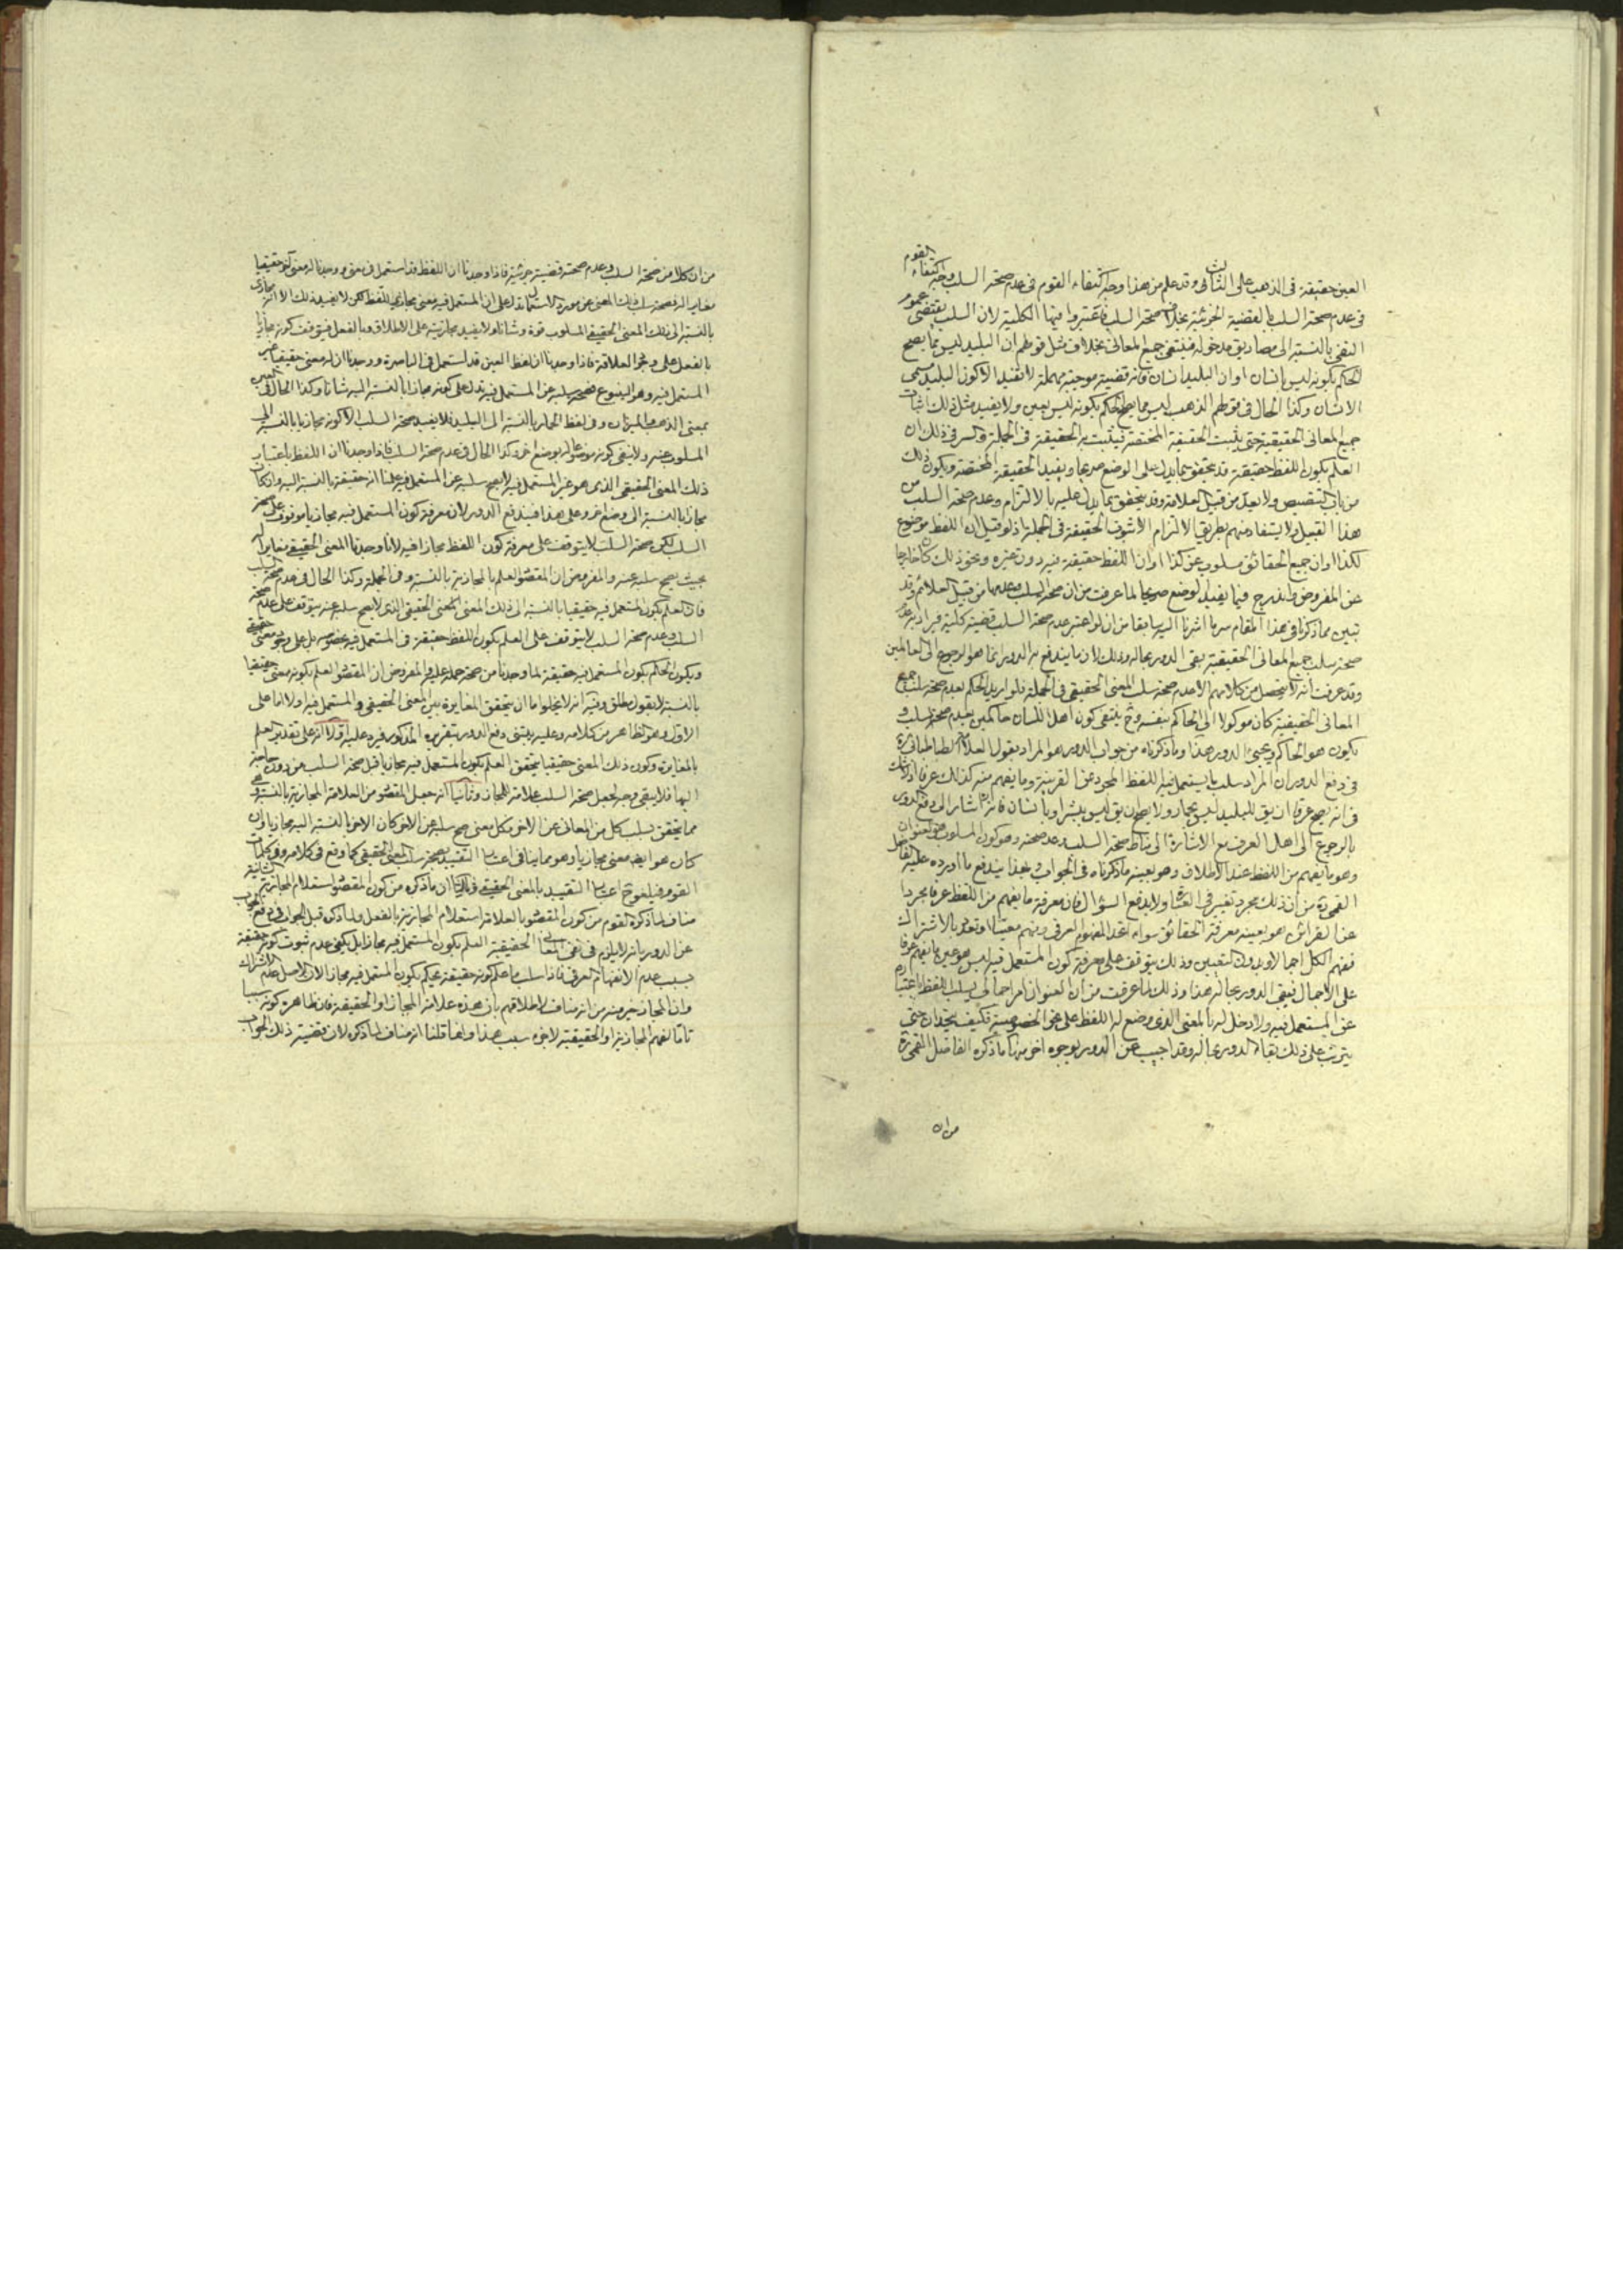 العين حقيقة فى الذهب على الثانى وقد علم من هذا وجه اكتفاء القوم فى عدم صحة السلب
فى عدم صحة السلب بالقضية الجزئية بخلاف صحة السلب فاعتبروا فيها الكلية لان السلب يقتضى عموم
النفى بالنسبة الى مصاديق مدخوله فينتفى جميع المعانى بخلاف مثل قولهم ان البليد ليس مما يصح
الحكم بكونه ليس بانسان او ان البليد انسان فانه قضية موجبة مهملة لا تفيد الا كون البليد مسمى
الانسان وكذا الحال فى قولهم الذهب ليس مما يصح الحكم بكونه ليس بعين ولا يفيد مثل ذلك اثبات
جميع المعانى الحقيقية حتى يثبت الحقيقة المختصة فيثبت به الحقيقة فى الجملة والسر فى ذلك ان
العلم بكون اللفظ حقيقة قد يتحقق بما يدل على الوضع صريحا ويفيد الحقيقة المختصة ويكون ذلك
من باب التنصيص ولا يعد من قبيل العلامة وقد يتحقق بما يدل عليه بالالتزام وعدم صحة السلب من
هذا القبيل ولا يستفاد منهم بطريق الالتزام الا ثبوت الحقيقة فى الجملة اذ لو قيل ان اللفظ موضوع
لكذا او ان جميع الحقائق مسلوب عن كذا او ان اللفظ حقيقة فيه دون غيره ونحو ذلك كان خارجا
عن المفروض واندرج فيما يفيد الوضع صريحا لما عرفت من ان صحة السلب وعدمها من قبيل العلائم وقد
تبين مما ذكرنا فى هذا المقام سر ما اشرنا اليه سابقا من ان لو اعتبر عدم صحة السلب قضية كلية فيراد به عدم
صحة سلب جميع المعانى الحقيقية بقى الدور بحاله وذلك لان ما يندفع به الدور انما هو الرجوع الى العالمين
وقد عرفت انه لا يتحصل من كلامهم الا عدم صحة سلب المعنى الحقيقى فى الجملة فلو اريد الحكم بعدم صحة سلب جميع
المعانى الحقيقية كان موكولا الى الحاكم بنفسه وح ينتفى كون اهل اللسان حاكمين بعدم صحة السلب و
يكون هو الحاكم ويجىء الدور هذا وما ذكرناه من جواب الدور هو المراد بقول العلامة الطباطبائى ره
فى دفع الدور ان المراد سلب ما يستعمل فيه اللفظ المجرد عن القرينة وما يفهم منه كذلك عرفا اذ لا شك
فى انه يصح عرفا ان يق للبليد ليس بحمار ولا يصح ان يق ليس ببشر او بانسان فانه اشار الى دفع الدور
بالرجوع الى اهل العرف مع الاشارة الى مناط صحة السلب وعدم صحته وهو كون المسلوب هو العنوان
وهو ما يفهم من اللفظ عند الاطلاق وهو بعينه ما ذكرناه فى الجواب وبهذا يندفع ما اورده عليه الفاضل
القمى ره من ان ذلك مجرد تغيير فى العبارة ولا يدفع السؤال فان معرفة ما يفهم من اللفظ عرفا مجردا
عن القرائن هو بعينه معرفة الحقائق سواء اتحد المفهوم العرفى وفهم معينا او تعدد بالاشتراك
ففهم الكل اجمالا وبدون التعيين وذلك يتوقف على معرفة كون المستعمل فيه ليس هو عين ما يفهم عرفا
على الاجمال فبقى الدور بحاله هذا وذلك لما عرفت من ان العنوان امر اجمالى يسلب اللفظ باعتباره
عن المستعمل فيه ولا دخل له بالمعنى الذى وضع له اللفظ على نحو الخصوصية فكيف يتحدان حتى
يترتب على ذلك بقاء الدور بحاله وقد اجيب عن الدور بوجوه اخر منها ما ذكره الفاضل القمى ره
من ان
من ان كلا من صحة السلب وعدم صحته قضية جزئية فاذا وجدنا ان اللفظ قد استعمل فى معنى ووجدنا له معنى اخر حقيقيا
مغايرا له فصحة سلب ذلك المعنى عن مورد الاستعمال تدل على ان المستعمل فيه معنى مجازى للفظ لكن لا يفيد ذلك الا انه مجازى
بالنسبة الى ذلك المعنى الحقيقى المسلوب قوة وشانا ولا يفيد مجازيته على الاطلاق وبالفعل فيتوقف كونه مجازيا
بالفعل على وجود العلاقة فاذا وجدنا ان لفظ العين قد استعمل فى الباصرة ووجدنا ان له معنى حقيقيا غير
المستعمل فيه وهو الينبوع فصحة سلبه عن المستعمل فيه تدل على كونه مجازا بالنسبة اليه شانا وكذا الحال فى العين
بمعنى الذهب والميزان وفى لفظ الحمار بالنسبة الى البليد فلا يفيد صحة السلب الا كونه مجازيا بالنسبة الى
المسلوب عنه ولا ينفى كونه موضوعا له بوضع اخر وكذا الحال فى عدم صحة السلب فاذا وجدنا ان اللفظ باعتبار
ذلك المعنى الحقيقى الذى هو غير المستعمل فيه لا يصح سلبه عن المستعمل فيه علمنا انه حقيقة بالنسبة اليه وان كان
مجازا بالنسبة الى وضع اخر وعلى هذا فيندفع الدور لان معرفة كون المستعمل فيه مجازيا موقوف على صحة
السلب لكن صحة السلب لا يتوقف على معرفة كون اللفظ مجازا فيه لانا وجدنا المعنى الحقيقى مغايرا له
بحيث يصح سلبه عنه والمفروض ان المقصود العلم بالمجازية بالنسبة وفى الجملة وكذا الحال فى عدم صحة السلب
فان العلم بكون المستعمل فيه حقيقيا بالنسبة الى ذلك المعنى الحقيقى الذى لا يصح سلبه عنه يتوقف على عدم صحة
السلب وعدم صحة السلب لا يتوقف على العلم بكون اللفظ حقيقة فى المستعمل فيه بخصوصه بل على وجود معنى حقيقى
ويكون الحكم بكون المستعمل فيه حقيقة لما وجدنا من صحة حمله عليه والمفروض ان المقصود العلم بكونه معنى حقيقيا
بالنسبة لا بقول مطلق وفيه انه لا يخلو اما ان يتحقق المغايرة بين المعنى الحقيقى والمستعمل فيه او لا اما على
الاول وهو الظاهر من كلامه وعليه يبتنى دفع الدور بتقريره المذكور فيرد عليه اولا انه على تقدير العلم
بالمغايرة وكون ذلك المعنى حقيقيا يتحقق العلم بكون المستعمل فيه مجازيا قبل صحة السلب من دون حاجة
اليها فلا يبقى وجه لجعل صحة السلب علامة للمجاز وثانيا انه جعل المقصود من العلامة المجازية بالنسبة وهى
مما يتحقق بسلب كل من المعانى عن الاخر فكل معنى صح سلبه عن الاخر كان الاخر بالنسبة اليه مجازيا وان
كان هو ايضا معنى مجازيا وهو مما ينافى اعتبار التقييد بصحة سلب المعنى الحقيقى كما وقع فى كلامه وفى كلمات
القوم فيلغو ح اعتبار التقييد بالمعنى الحقيقى وثالثا ان ما ذكره من كون المقصود استعلام المجازية بالنسبة
مناف لما ذكره القوم من كون المقصود بالعلامة استعلام المجازية بالفعل ولما ذكره قبل الجواب فى دفع الجواب
عن الدور بانه لا يلزم فى نفى المعانى الحقيقية العلم بكون المستعمل فيه مجازا بل يكفى عدم ثبوت كونه حقيقة
بسبب عدم الانفهام العرفى فاذا سلب ما علم كونه حقيقة يحكم بكون المستعمل فيه مجازا لان الاصل عدم الاشتراك
وان المجاز خير منه من انه مناف لاطلاقهم بان هذه علامة المجاز او الحقيقة فان ظاهره كونه سببا
تاما لفهم المجازية او الحقيقية لا جزء سبب هذا وانما قلنا انه مناف لما ذكره لان قضية ذلك الجواب